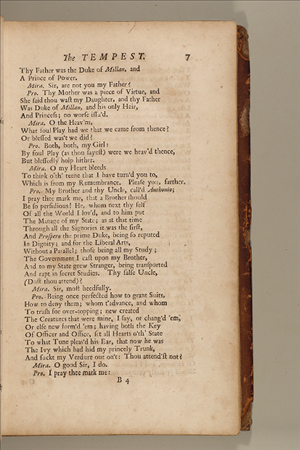 The TEMPEST. 7
Thy Father was the Duke of Millan, and
A Prince of Power.
Mira. Sir, are not you my Father?
Pro. Thy Mother was a piece of Virtue, and
She said thou wast my Daughter, and thy Father
Was Duke of Millan, and his only Heir,
And Princess; no worse issu'd.
Mira. O the Heav'ns,
What foul Play had we that we came from thence?
Or blessed was't we did?
Pro. Both, both, my Girl:
By foul Play (as thou sayest) were we heav'd thence,
But blessedly holp hither.
Mira. O my Heart bleeds
To think o'th' teene that I have turn'd you to,
Which is from my Remembrance. Please you, farther.
Pro. My Brother and thy Uncle, call'd Anthonio;
I pray thee mark me, that a Brother should
Be so perfidious! He, whom next thy self
Of all the World I lov'd, and to him put
The Manage of my State; as at that time
Through all the Signories it was the first,
And Prospero the prime Duke, being so reputed
In Dignity; and for the Liberal Arts,
Without a Parallel; those being all my Study;
The Government I cast upon my Brother,
And to my State grew Stranger, being transported
And rapt in secret Studies. Thy false Uncle,
(Dost thou attend?)
Mira. Sir, most heedfully.
Pro. Being once perfected how to grant Suits,
How to deny them; whom t'advance, and whom
To trash for over-topping; new created
The Creatures that were mine, I say, or chang'd 'em,
Or else new form'd 'em; having both the Key
Of Officer and Office, set all Hearts o'th' State
To what Tune pleas'd his Ear, that now he was
The Ivy which had hid my princely Trunk,
And suckt my Verdure out on't: Thou attend'st not?
Mira. O good Sir, I do.
Pro. I pray thee mark me:
B 4